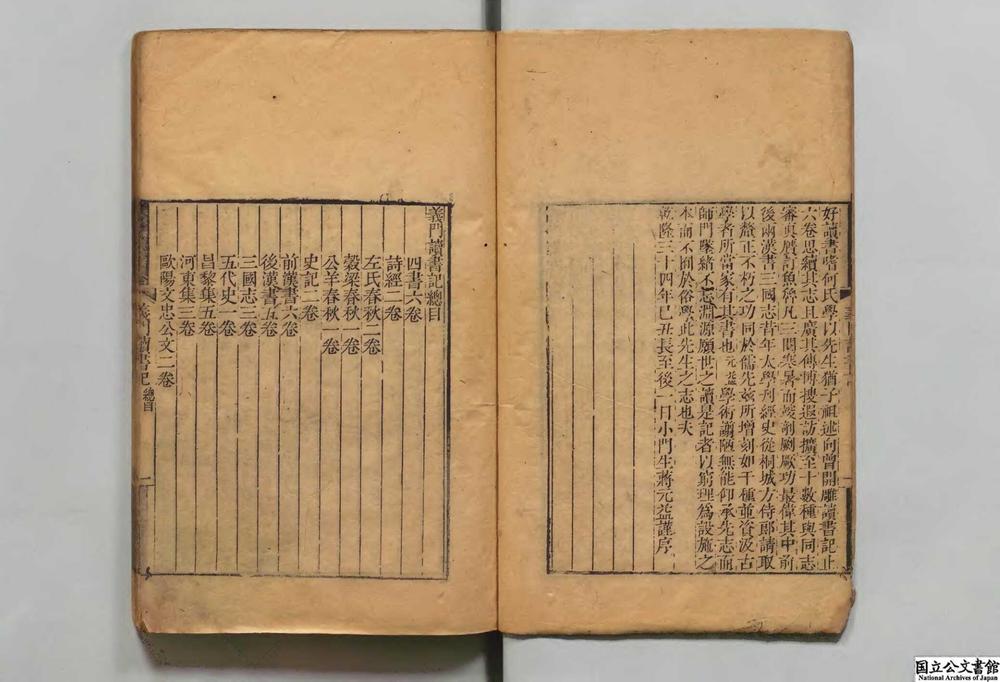 好讀書嗜何氏學以先生猶子祖述向曾開雕讀書記止
六卷思續其志且廣其傳博搜遐訪擴至十數種與同志
審臾厩訂魚魯凡三閱寒暑而竣剞劂厥功最偉其中前
後兩漢書三國志昔年太學刋經史從桐城方侍郎請取
以釐正不朽之功同於儒先兹所增刻如干種並資汲古
學者所當家有其書也元益學術譾陋無能仰承先志而
師門墜緒不忘淵源願世之讀是記者以窮理爲設施之
本而不囿於俗學此先生之志也夫
乾隆三十四年巳丑長至後一日小門生蔣元益謹序
義門讀書記總目
四書六卷
詩經二卷
左氏春秋二卷
穀梁春秋一卷
公羊春秋一卷
史記二卷
前漢書六卷
後漢書五卷
三國志三卷
五代史一卷
昌黎集五卷
河東集三卷
歐陽文忠公文二卷
義門讀書記 總目 一
国立公文書館
National Archives of Japan